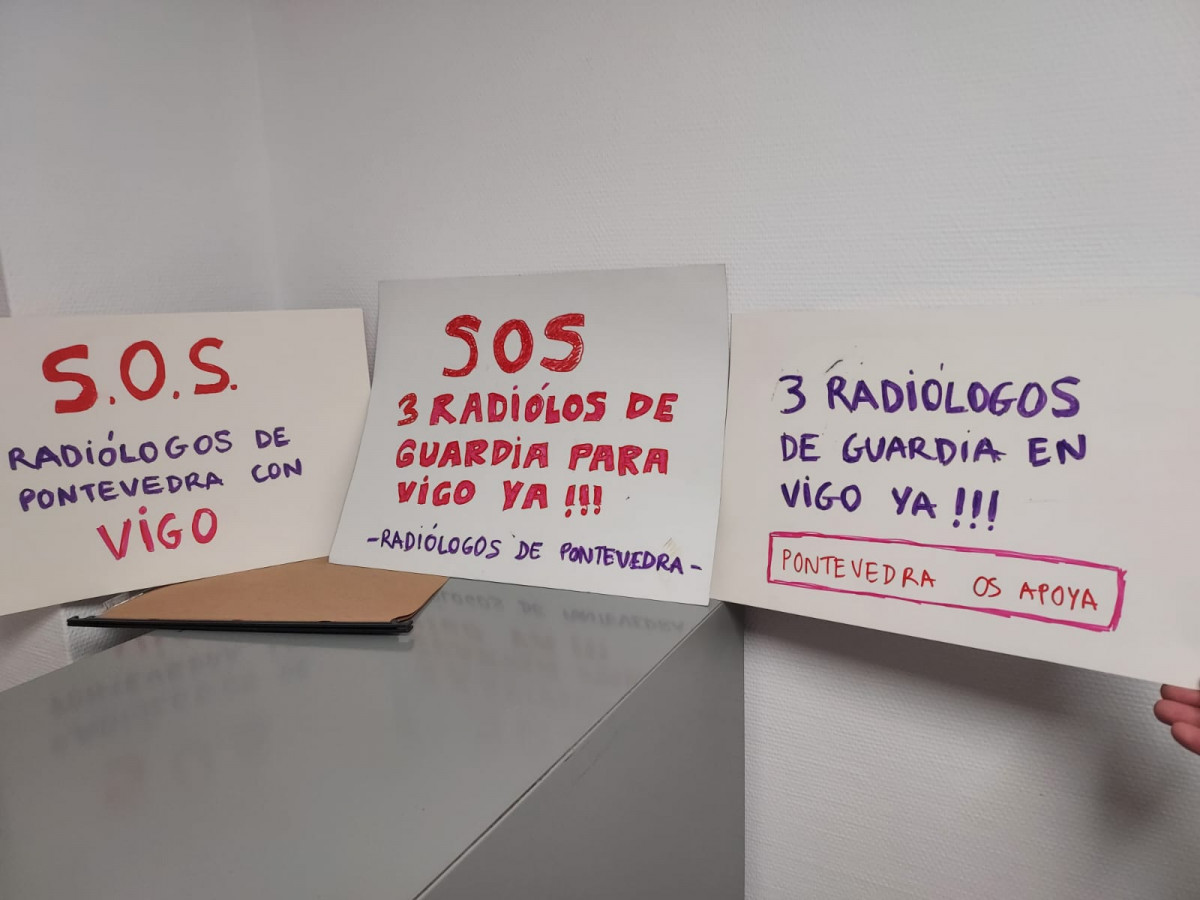 S.O.S.
RADIÓLOGOS DE
PONTEVEDRA CON
VIGO
SOS
3 RADIÓLOS DE
GUARDIA PARA
VIGO YA !!!
-RADIÓLOGOS DE PONTEVEDRA-
3 RADIÓLOGOS
DE GUARDIA EN
VIGO YA !!!
PONTEVEDRA OS APOYA